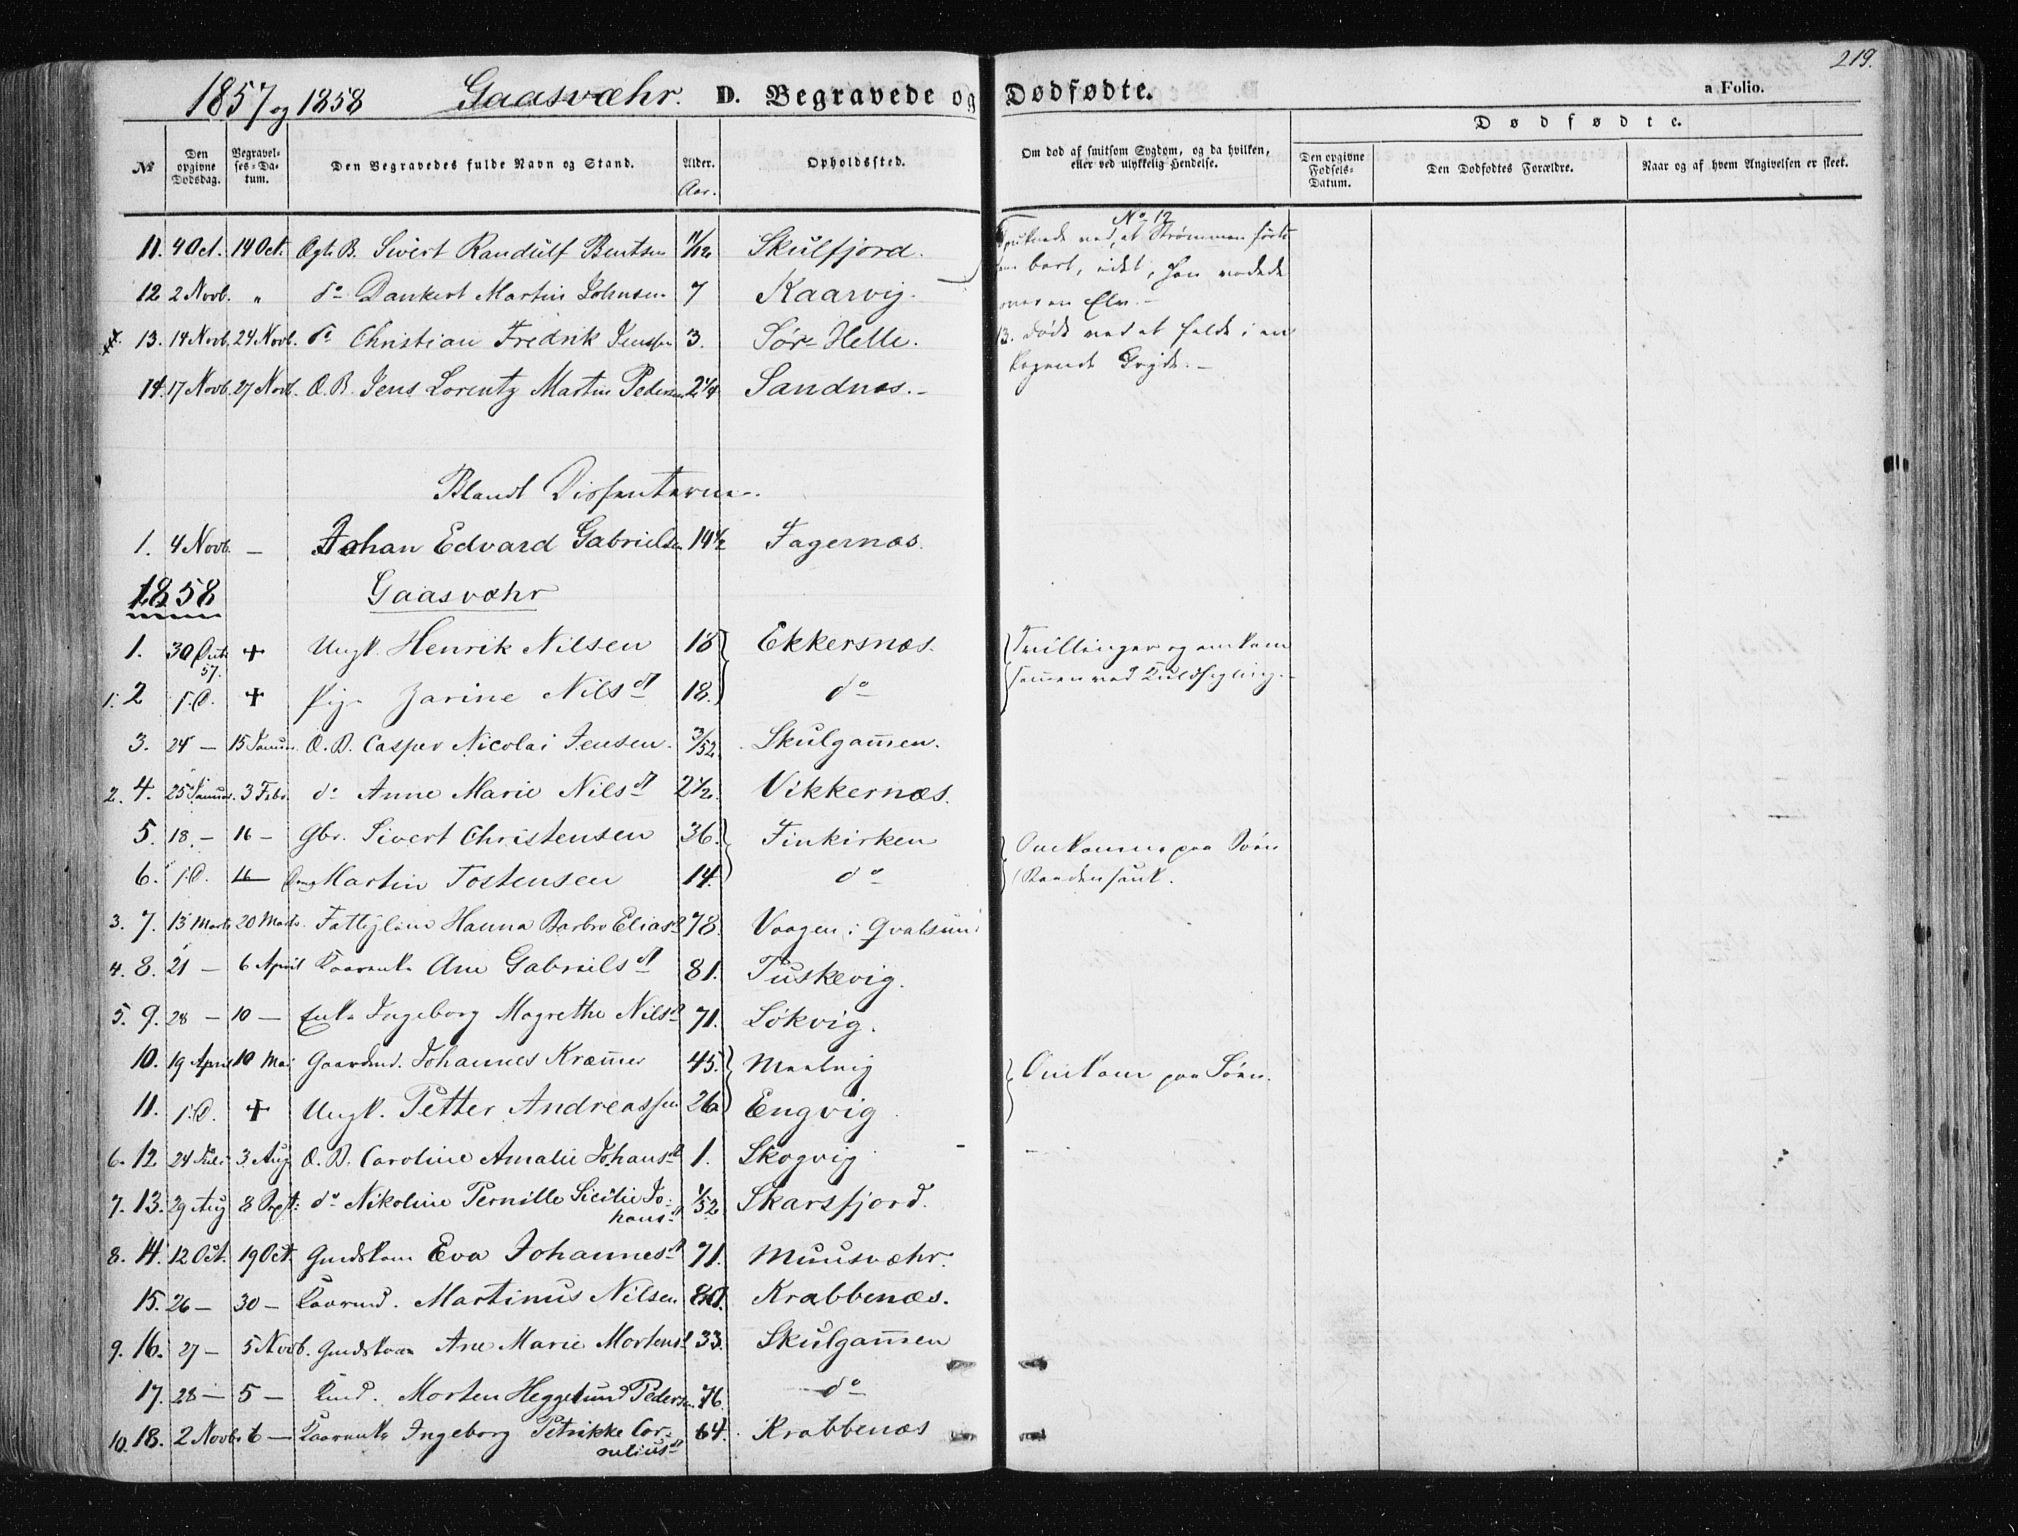 219.
1857 og 1858 Gaasvæhr. D. Begravede og Dødfødte. a Folio.
Dødfødte.
No Den opgivne Dødsdag. Begravelses-Datum. Den Begravedes fulde Navn og Stand. Alder. Aar. Opholdssted. Om død af smitsom Sygdom, og da hvilken, eller ved ulykkelig Hendelse. Den opgivne Fødsels-Datum. Den Dødfødtes Forældre. Naar og af hvem Angivelsen er skeet.
11. 4 Oct. 14 Oct. Ægt. B. Sivert Randulf Bentsen 11/12 Skulfjord. No 12 ved, at Strømmen førte
12 2 Novb. " do Dankert Martin Johnsen 7 Kaarvig. bort, idet, han vadede
over en Elv.-
13. 14 Novb. 24 Novb. do Christian Fredrik Jenssen 3. Sør-Helle. 13. døde ved at falde i en
14. 17 Novb. 27 Novb. Æ. B. Jens Lorentz Martin Pedersen 2 1/4 Sandnæs.- kogende Gryde.-
Blandt Dissenterne.
1. 4 Novb. - Johan Edvard Gabrielsen 14 1/2 Fagernæs.
1858 Gaasvæhr
1. 30 Oct. 57. + Ungk. Henrik Nilsen 18 Ekkersnæs. Tvillinger og omkom
1. 2 s. D. + Pige Zarine Nilsdt 18. do sammen ved Kuldseyling.-
3. 24 - 15 Januar. Æ. B. Casper Nicolai Jensen. 3/52 Skulgam̄en.
2. 4. 25 Januar. 3 Febr. do Anne Marie Nilsdt 2 1/2 Vikkernæs.
5. 18 - 16 - Gbr. Sivert Christensen 36. Finkirken Omkomne paa Søen
6. s. D. 16 - Dreng Martin Tostensen 14. do
3. 7. 13 Marts 20 Marts. Fattiglem Hanna Barbro Eliasdt 78. Vaagen i Qvalsund
4. 8. 21 - 6 April Kaarenke Ane Gabrielsdt 81. Tuskevig.
5. 9. 28 - 10 - Enke Ingeborg Magrethe Nilsdt 71. Løkvig.
10. 19 April 10 Mai Gaardmd. Johannes Kræmer 45. Maalvig Omkom paa Søen.
11. s. D. + Ungk. Petter Andreassen 26 Engvig
6. 12 24 Juli 3 Aug Æ. B. Caroline Amalie Johansdt 1. Skogvig
7. 13. 29 Aug 8 Sept: do Nikoline Pernille Sicilie Jo-
hansdt 1/52 Skarsfjord.
8. 14. 12 Oct. 19 Oct. Gmdskone Eva Johannesdt 71. Muusvæhr.
15. 26 - 30 - Kaarmd. Martinus Nilsen Krabbenæs.
9. 16. 27 - 5 Novb. Gmdskone Ane Marie Mortensdt 33. Skulgam̄en
17. 28 - 5 - Kmd. Morten Heggelund Pedersen 76. do
10. 18. 2 Novb. 6 - Kaarenke Ingeborg Petrikke Cor-
neliusdt 64. Krabbenæs